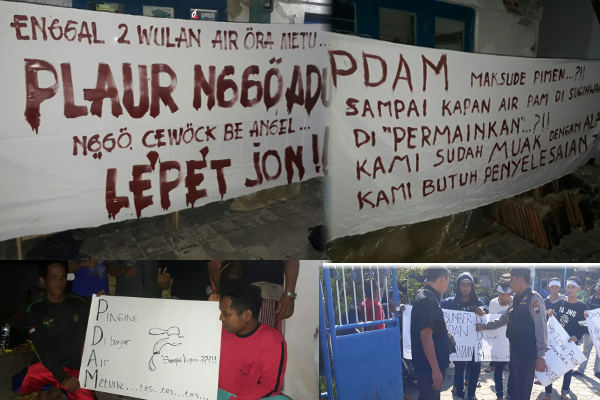 ENGGAL 2 WULAN AIR ÖRA METU...
PLAUR NGGÖ ADU
NGGÖ CEWÖCK BE ANGEL...
LÉPÉT JON!!
PDAM MAKSUDE PIMEN...?!!
SAMPAI KAPAN AIR PAM DI SUGIHWA
DI "PERMAINKAN"...?!!
KAMI SUDAH MUAK DENGAN ALA
KAMI BUTUH PENYELESAIAN
PINGINE
Di banjar
Sampai kapan????!!
A
Metune...tes...tes...tes...
SUMBER
DAN